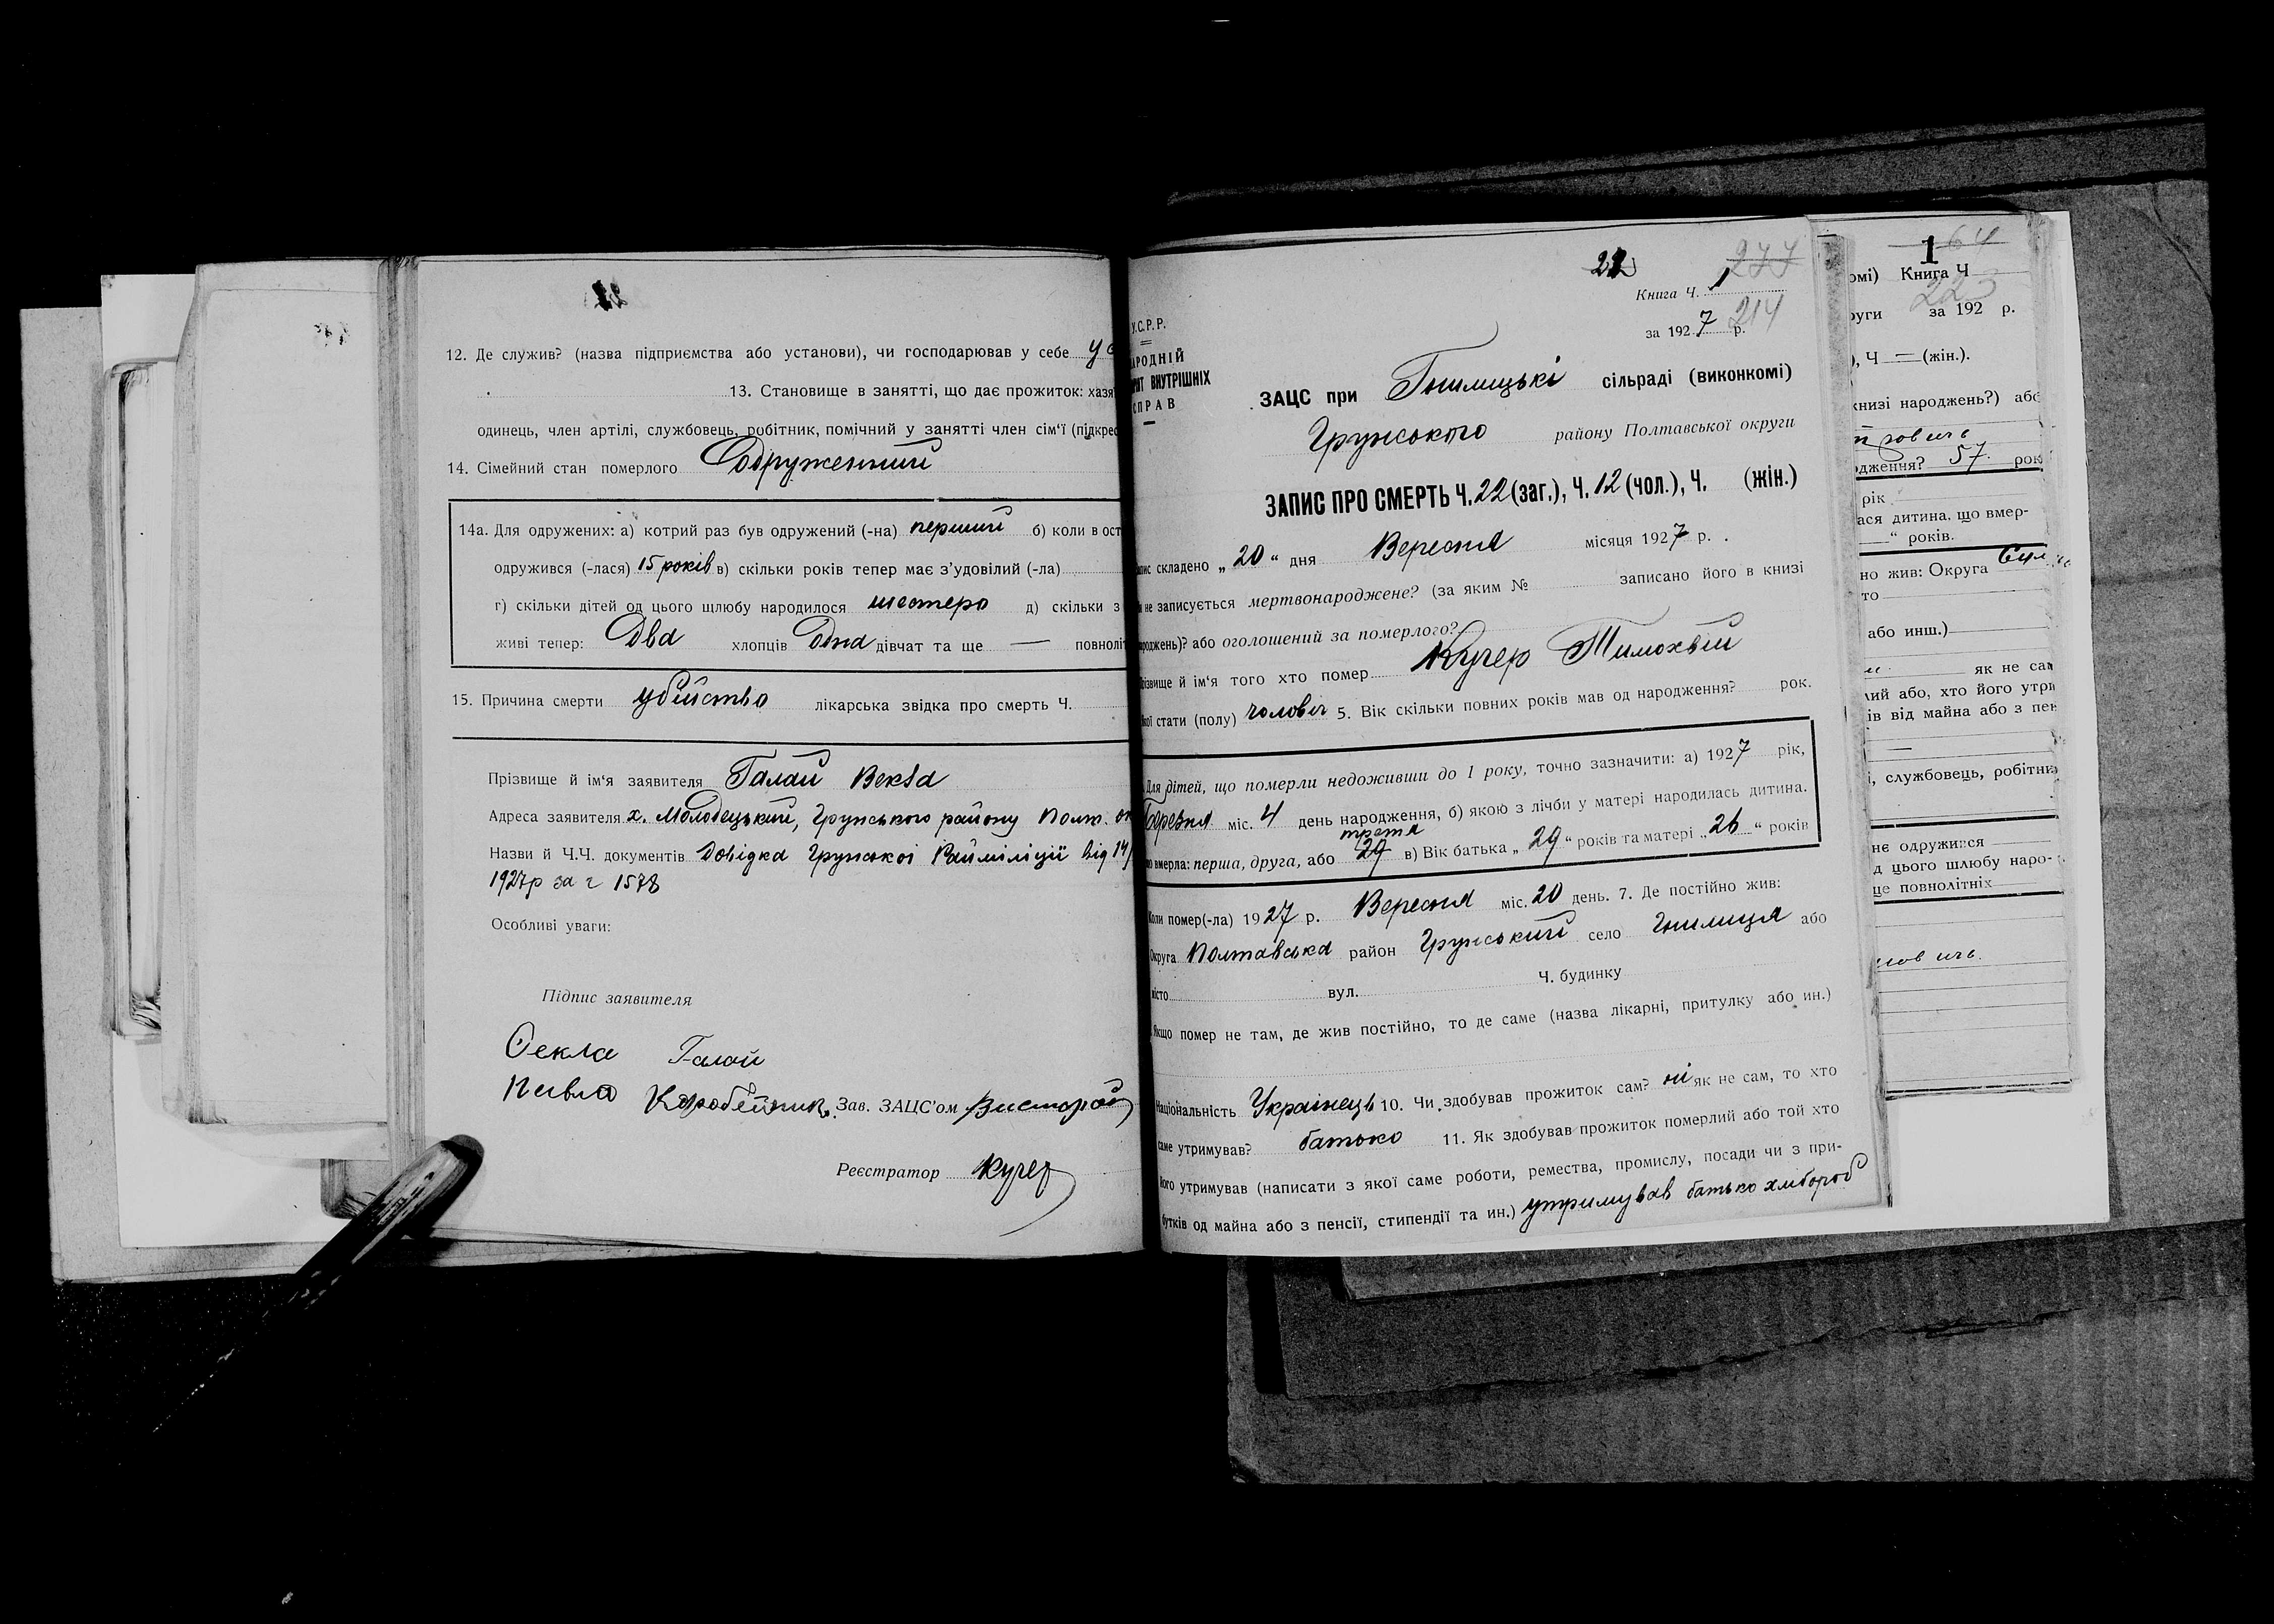 12. Де служив? (назва підприємства або установи), чи господарював у себе у с
13. Становище в занятті, що дає прожиток: хазя
одинець, член артілі, службовець, робітник, помічний у занятті член сім'ї (підкрес
14. Сімейний стан померлого Одружений
14а. Для одружених: а) котрий раз був одружений (-на) перший б) коли в ост
одружився (-лася) 15 років в) скільки років тепер має з'удовілий (-ла)
г) скільки дітей од цього шлюбу народилося шестеро д) скільки з
живі тепер: Два хлопців Одна дівчат та ще — повноліт
15. Причина смерти убійство лікарська звідка про смерть Ч.
Прізвище й ім'я заявителя Галай Векла
Адреса заявителя х. Молодецький, Грунського району Полт. ок
Назви й Ч.Ч. документів Довідка Грунської Райміліції від 14/
1927р за ч 1578
Особливі уваги:
Підпис заявителя
Секла Галай
Павло Коробейник. Зав. ЗАЦС'ом
Реєстратор Кучер
22 277
Книга Ч. 1
214
за 1927 р.
У.С.Р.Р.
АРОДНІЙ
РІЯТ ВНУТРІШНІХ
СПРАВ
ЗАЦС при Гнилицькі сільраді (виконкомі)
Грунського району Полтавської округи
ЗАПИС ПРО СМЕРТЬ Ч. 22 (заг.), Ч. 12 (чол.), Ч. (жін.)
пис складено „ 20 “ дня Вересня місяця 1927 р.
и не записується мертвонароджене? (за яким № записано його в книзі
роджень)? або оголошений за померлого?
різвище й ім'я того хто помер Кучер Тимохвій
кої стати (полу) чоловіч 5. Вік скільки повних років мав од народження? рок.
Для дітей, що померли недоживши до 1 року, точно зазначити: а) 1927 рік,
березня міс. 4 день народження, б) якою з лічби у матері народилась дитина.
що вмерла: перша, друга, або 29 третя в) Вік батька „ 29 “ років та матері „ 26 “ років
Коли помер(-ла) 1927 р. Вересня міс. 20 день. 7. Де постійно жив:
Округа Полтавська район Грунський село Гнилиця або
місто вул. Ч. будинку
Якщо помер не там, де жив постійно, то де саме (назва лікарні, притулку або ин.)
Національність Українець 10. Чи здобував прожиток сам? ні як не сам, то хто
саме утримував? батько 11. Як здобував прожиток померлий або той хто
його утримував (написати з якої саме роботи, ремества, промислу, посади чи з при-
бутків од майна або з пенсії, стипендії та ин.) утримував батько хлібороб
64
1
омі) Книга Ч
223
руги за 192 р.
), Ч — (жін.).
книзі народжень?) або
одження? 57 рок
рік
ася дитина, що вмер-
“ років.
но жив: Округа
то
або инш.)
як не сам
лий або, хто його утри
ів від майна або з пен
і, службовець, робітни
не одружився
д цього шлюбу наро-
це повнолітніх